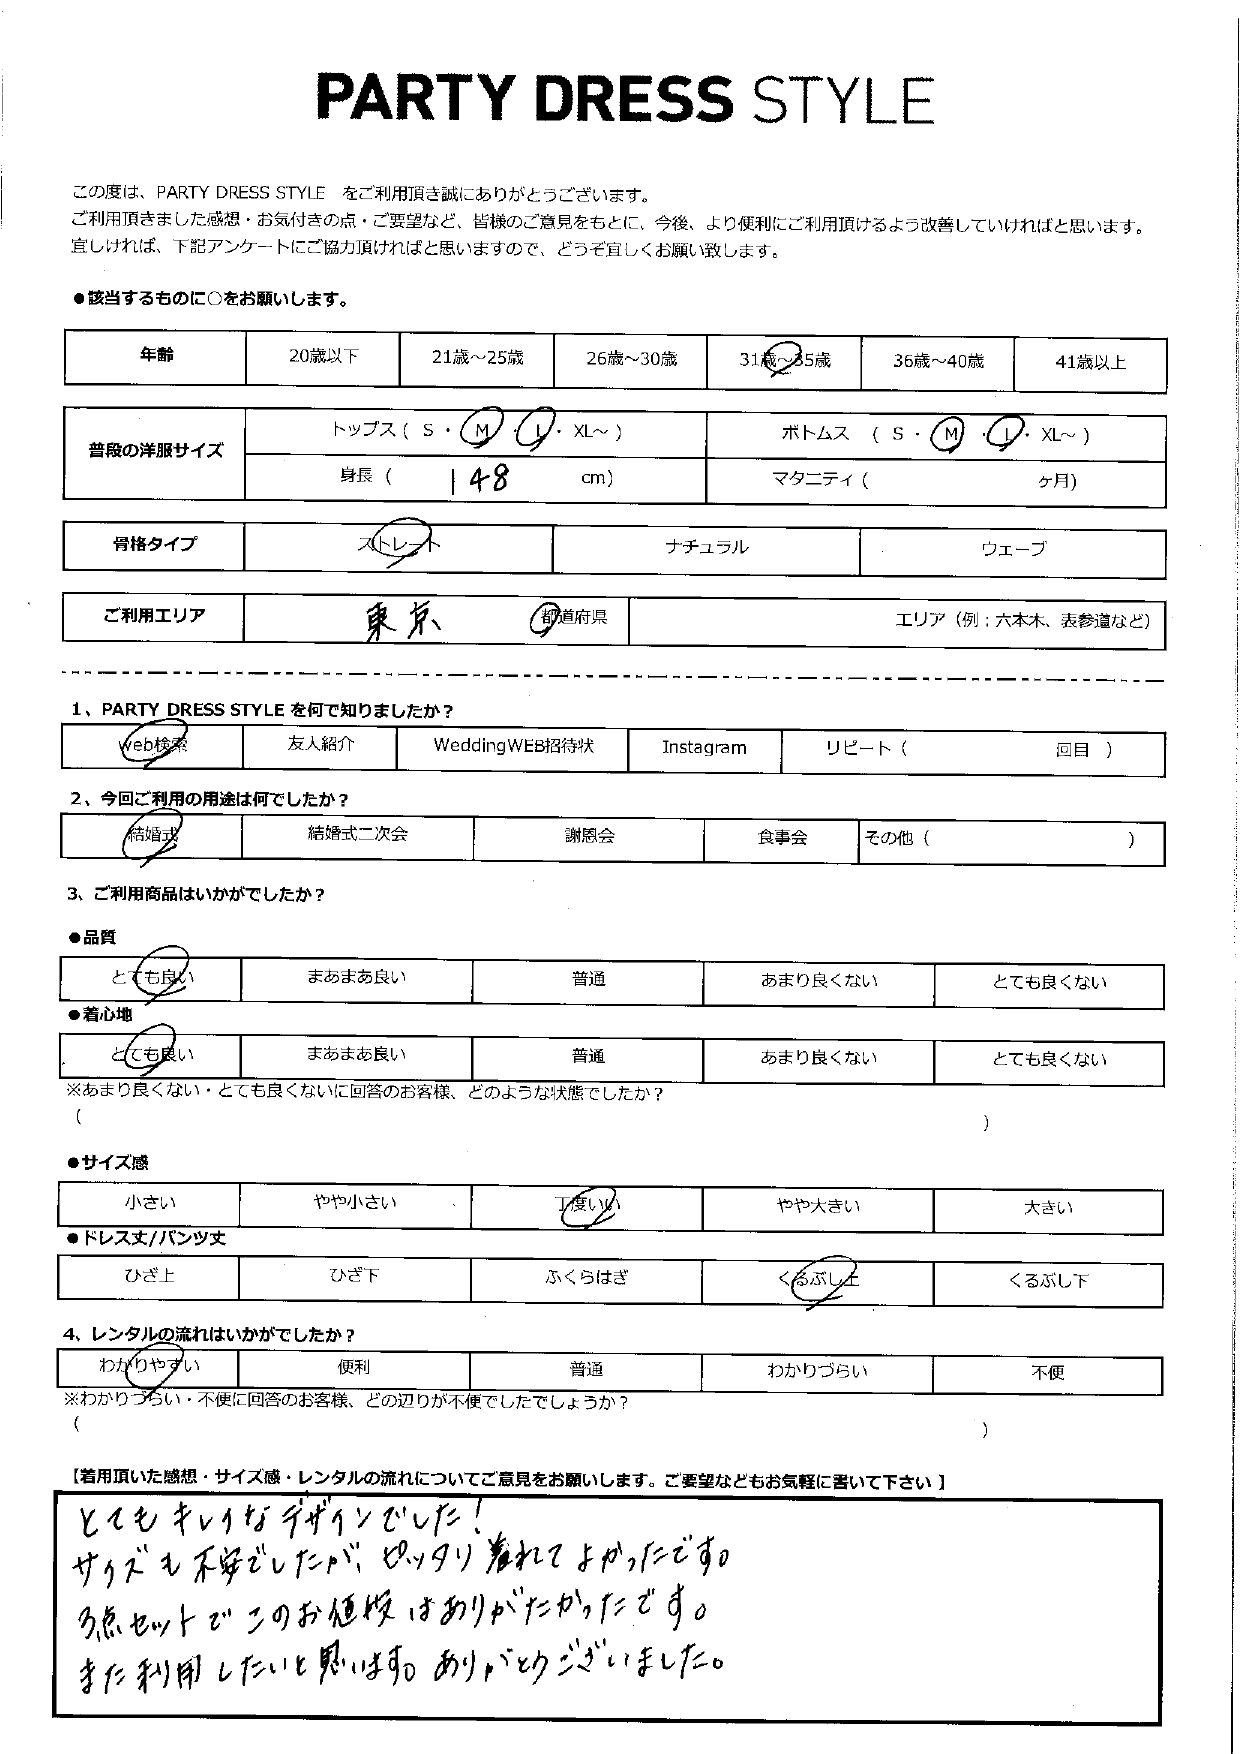 PARTY DRESS STYLE
この度は、PARTY DRESS STYLE をご利用頂き誠にありがとうございます。
ご利用頂きました感想・お気付きの点・ご要望など、皆様のご意見をもとに、今後、より便利にご利用頂けるよう改善していければと思います。
宜しければ、下記アンケートにご協力頂ければと思いますので、どうぞ宜しくお願い致します。
●該当するものに○をお願いします。
年齢 20歳以下 21歳～25歳 26歳～30歳 31歳～35歳 36歳～40歳 41歳以上
普段の洋服サイズ トップス ( S ・ M ・ L ・ XL～ ) ボトムス ( S ・ M ・ L ・ XL～ )
身長 ( 148 cm) マタニティ ( ヶ月)
骨格タイプ ストレート ナチュラル ウェーブ
ご利用エリア 東京 都道府県 エリア（例：六本木、表参道など）
1、PARTY DRESS STYLE を何で知りましたか？
web検索 友人紹介 WeddingWEB招待状 Instagram リピート ( 回目 )
2、今回ご利用の用途は何でしたか？
結婚式 結婚式二次会 謝恩会 食事会 その他 ( )
3、ご利用商品はいかがでしたか？
●品質
とても良い まあまあ良い 普通 あまり良くない とても良くない
●着心地
とても良い まあまあ良い 普通 あまり良くない とても良くない
※あまり良くない・とても良くないに回答のお客様、どのような状態でしたか？
( )
●サイズ感
小さい やや小さい 丁度いい やや大きい 大きい
●ドレス丈/パンツ丈
ひざ上 ひざ下 ふくらはぎ くるぶし上 くるぶし下
4、レンタルの流れはいかがでしたか？
わかりやすい 便利 普通 わかりづらい 不便
※わかりづらい・不便に回答のお客様、どの辺りが不便でしたでしょうか？
( )
【着用頂いた感想・サイズ感・レンタルの流れについてご意見をお願いします。ご要望などもお気軽に書いて下さい 】
とてもキレイなデザインでした！
サイズも不安でしたが、ピッタリ着れてよかったです。
3点セットでこのお値段はありがたかったです。
また利用したいと思います。ありがとうございました。